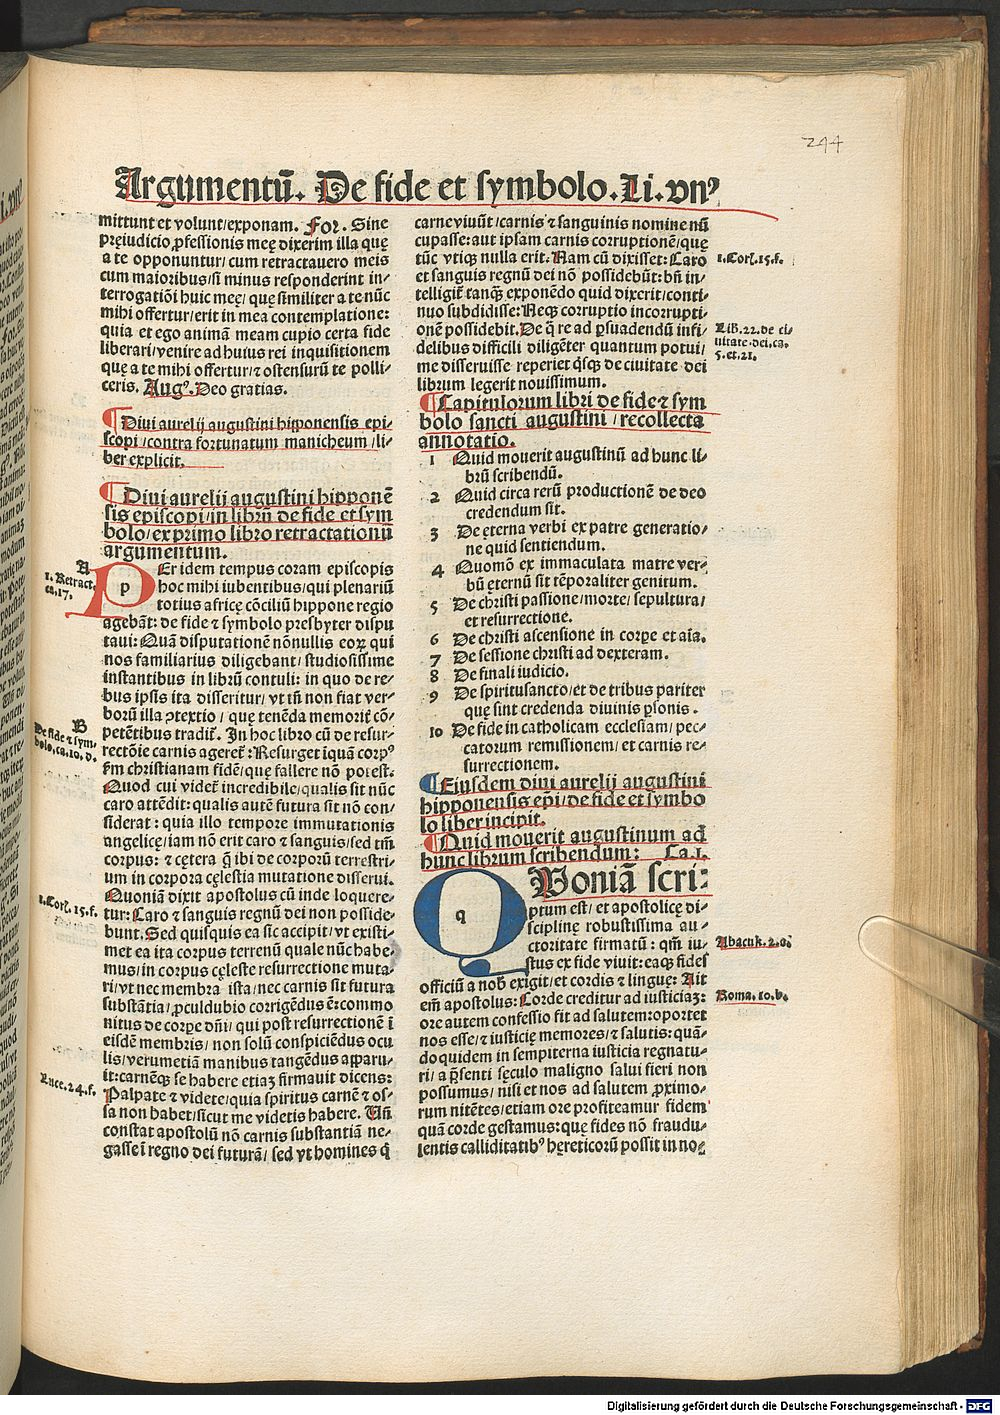 244
Argumentū. De fide et symbolo. Li. vnꝰ
mittunt et volunt/exponam. For. Sine
pręiudicio ꝓfessionis meę dixerim illa quę
a te opponuntur/cum retractauero meis
cum maioribus/si minus responderint in-
terrogatiōi huic meę/ quę similiter a te nūc
mihi offertur/erit in mea contemplatione:
quia et ego animā meam cupio certa fide
liberari/venire ad huius rei inquisitionem
quę a te mihi offertur/⁊ ostensurū te polli-
ceris. Augꝰ. Deo gratias.
¶ Diui aurelij augustini hipponensis epi-
scopi/contra fortunatum manicheum/li-
ber explicit.
¶ Diui aurelij augustini hipponē
sis episcopi/in librū de fide et sym
bolo/ex primo libro retractationū
argumentum.
A
1. Retract.
ca.17.
p
PEr idem tempus coram episcopis
hoc mihi iubentibus/qui plenariū
totius africę cōciliū hippone regio
agebāt: de fide ⁊ symbolo presbyter dispu
taui: Quā disputationē nōnullis eoꝝ qui
nos familiarius diligebant/studiosissime
instantibus in librū contuli: in quo de re-
bus ipsis ita disseritur/vt tn̄ non fiat ver-
borū illa ꝓtextio/ quę tenēda memorię cō-
petētibus tradit̄. In hoc libro cū de resur-
rectōie carnis ageret̄: Resurget iquā corpꝰ
s̄m christianam fidē/que fallere nō potest.
B
De fide ⁊ sym-
bolo,ca.10.d.
Quod cui videt̄ incredibile/qualis sit nūc
caro attēdit: qualis autē futura sit nō con-
siderat: quia illo tempore immutationis
angelice/iam nō erit caro ⁊ sanguis/sed tm̄
corpus: ⁊ cętera q̄ ibi de corporū terrestri-
um in corpora cęlestia mutatione disserui.
1.Corī.15.f.
Quoniā dixit apostolus cū inde loquere-
tur: Caro ⁊ sanguis regnū dei non posside-
bunt. Sed quisquis ea sic accipit/vt existi-
met ea ita corpus terrenū quale nūc habe-
mus/in corpus cęleste resurrectione muta-
ri/vt nec membra ista/nec carnis sit futura
substātia/ꝓculdubio corrigēdus ē: commo
nitus de corpe dn̄i/ qui post resurrectionē ī
eisdē membris/ non solū conspiciēdus ocu
lis/verumetiā manibus tangēdus apparu-
it: carnēqꝫ se habere etiaꝫ firmauit dicens:
Luce.24.f.
Palpate ⁊ videte/quia spiritus carnē ⁊ os-
sa non habet/sicut me videtis habere. Vn̄
constat apostolū nō carnis substantiā ne-
gasse ī regno dei futurā/ sed vt homines q̄
carne viuūt/carnis ⁊ sanguinis nomine nū
cupasse: aut ipsam carnis corruptionē/que
tūc vtiqꝫ nulla erit. Nam cū dixisset: Caro
1.Corī.15.f.
et sanguis regnū dei nō possidebūt: bn̄ in-
telligit̄ tanqꝫ exponēdo quid dixerit/conti-
nuo subdidisse: Neqꝫ corruptio incorrupti-
onē possidebit. De q̄ re ad ꝑsuadendū infi-
Lib.22.de ci-
uitate dei,ca.
5.et.21.
delibus difficili diligēter quantum potui/
me disseruisse reperiet q̄sqꝫ de ciuitate dei
librum legerit nouissimum.
¶ Capitulorum libri de fide ⁊ sym
bolo sancti augustini/recollecta
annotatio.
1 Quid mouerit augustinū ad hunc li-
brū scribendū.
2 Quid circa rerū productionē de deo
credendum sit.
3 De ęterna verbi ex patre generatio-
ne quid sentiendum.
4 Quomō ex immaculata matre ver-
bū ęternū sit tēporaliter genitum.
5 De christi passione/morte/sepultura/
et resurrectione.
6 De christi ascensione in corpe et aīa.
7 De sessione christi ad dexteram.
8 De finali iudicio.
9 De spiritusancto/et de tribus pariter
quę sint credenda diuinis ꝑsonis.
10 De fide in catholicam ecclesiam/pec-
catorum remissionem/et carnis re-
surrectionem.
¶ Eiusdem diui aurelij augustini
hipponensis ep̄i/de fide et symbo
lo liber incipit.
¶ Quid mouerit augustinum ad
hunc librum scribendum: Ca.1.
q
QVoniā scri-
ptum est/et apostolicę di-
sciplinę robustissima au-
ctoritate firmatū: qm̄ iu-
Abacuk.2.a.
stus ex fide viuit: eaqꝫ fides
officiū a nob̄ exigit/et cordis ⁊ linguę: Ait
em̄ apostolus: Corde creditur ad iusticiaꝫ:
Roma.10.b.
ore autem confessio fit ad salutem:oportet
nos esse/⁊ iusticię memores/⁊ salutis: quā-
doquidem in sempiterna iusticia regnatu-
ri/ a p̄senti sęculo maligno salui fieri non
possumus/ nisi et nos ad salutem ꝓximo-
rum nitētes/etiam ore profiteamur fidem
quā corde gestamus: que fides nō fraudu-
lentis calliditatibꝰ hęreticorū possit in no-
Digitalisierung gefördert durch die Deutsche Forschungsgemeinschaft - DFG